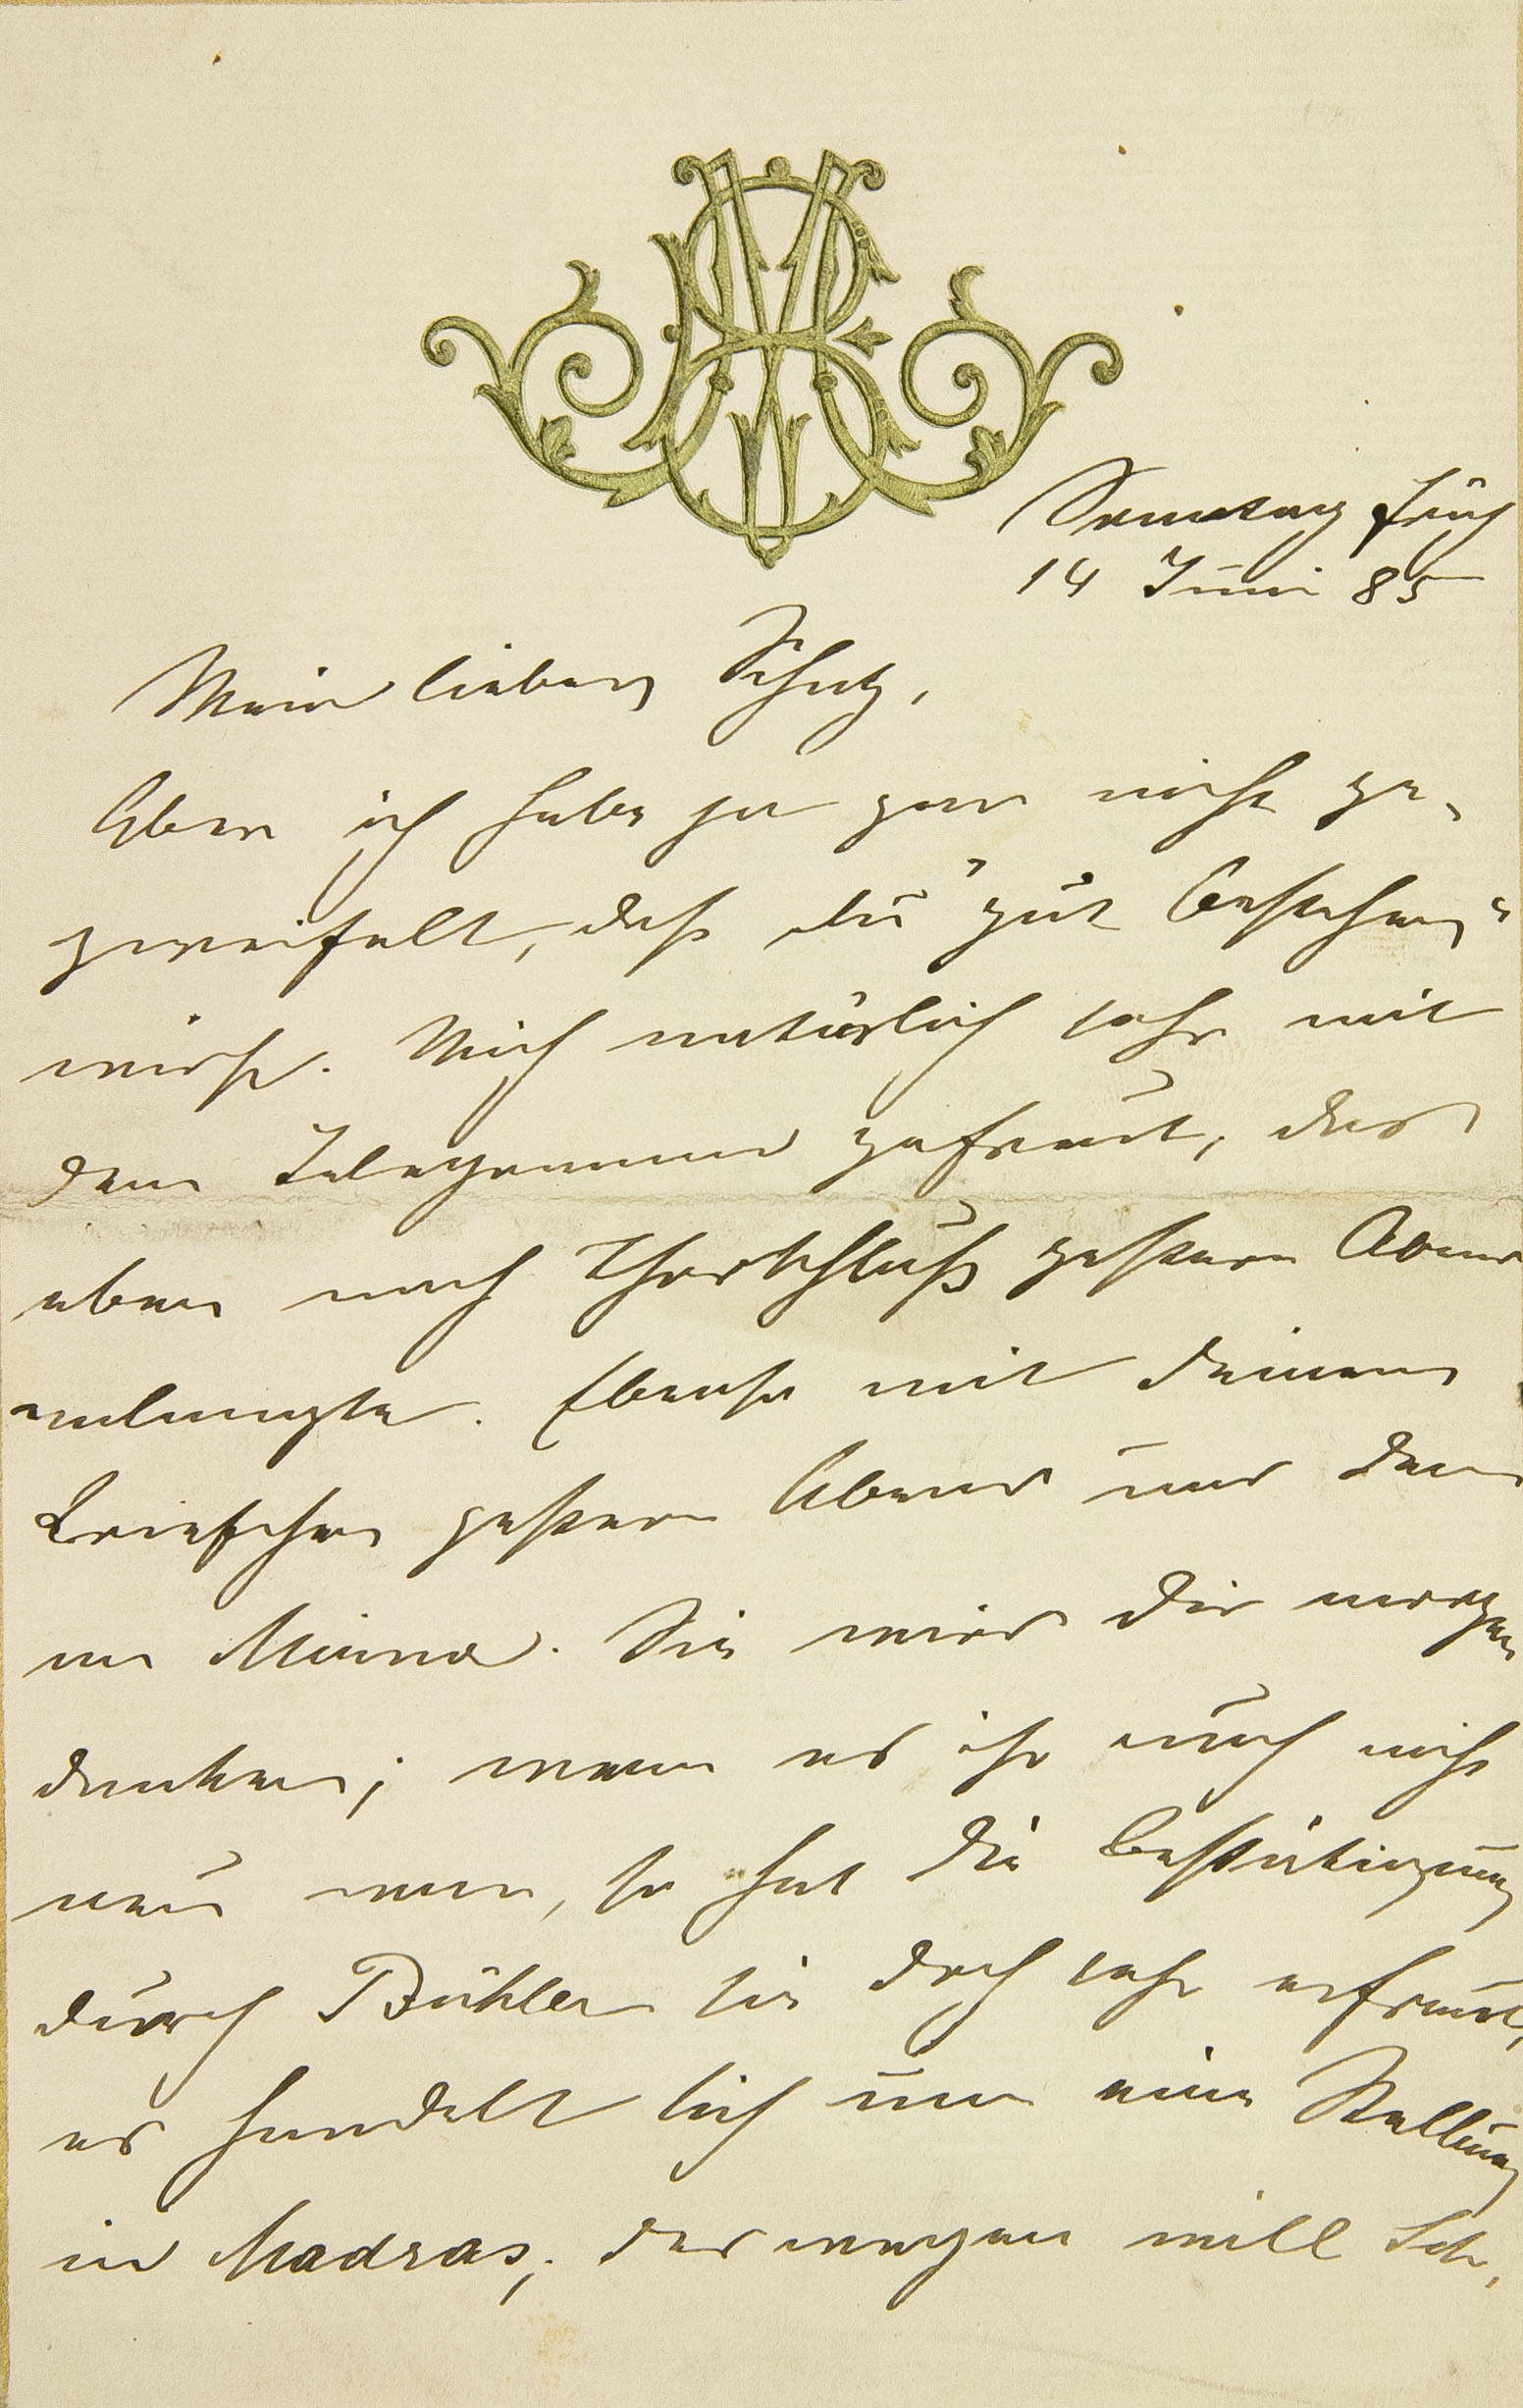 Sonntag früh
14 Juni 85
Mein lieber Schatz,
Aber ich habe ja gar nicht ge-
zweifelt, daß du "gut bestehen"
wirst. Mich natürlich sehr mit
dem Telegramm gefreut, das
eben nach Thorschluß gestern Abend
anlangte. Ebenso mit deinem
Briefchen gestern Abend und dem
an Minna. Sie wird dir morgen
danken; wenn es ihr auch nicht
neu war, so hat die Bestätigung
durch Bühler sie doch sehr erfreut,
es handelt sich um eine Stellung
in Madras, deswegen will Sch.